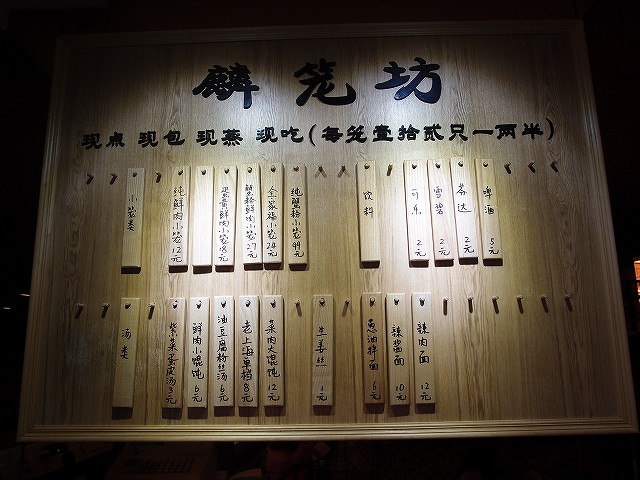 麟笼坊
现点 现包 现蒸 现吃(每笼壹拾贰只一两半)
小笼类
纯鲜肉小笼12元
蛋黄鲜肉小笼18元
蟹粉鲜肉小笼27元
全家福小笼24元
纯蟹粉小笼99元
饮料
可乐2元
雪碧2元
芬达2元
啤酒5元
汤类
紫菜蛋皮汤3元
鲜肉小馄饨6元
油豆腐粉丝汤6元
老上海单档8元
菜肉大馄饨12元
生姜丝1元
葱油拌面6元
辣酱面10元
辣肉面12元